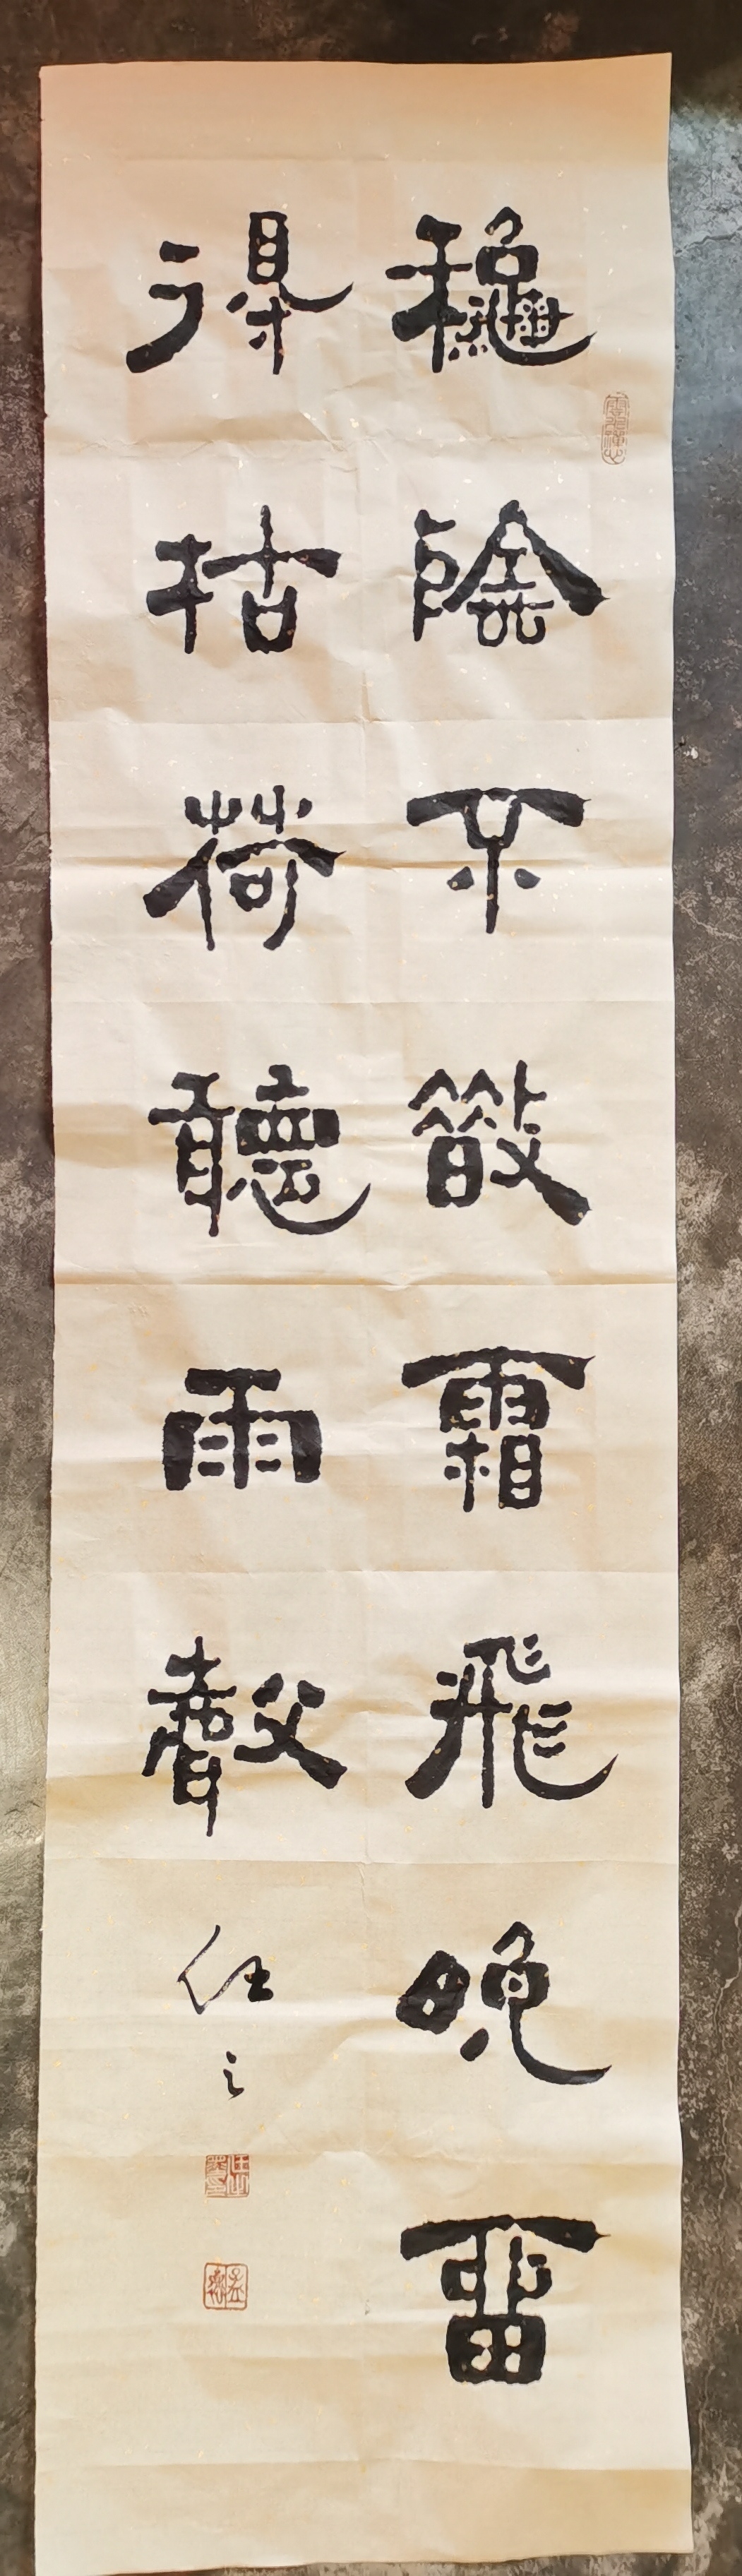 龝陰不散霜飛晚畱
得枯荷聽雨聲
任之